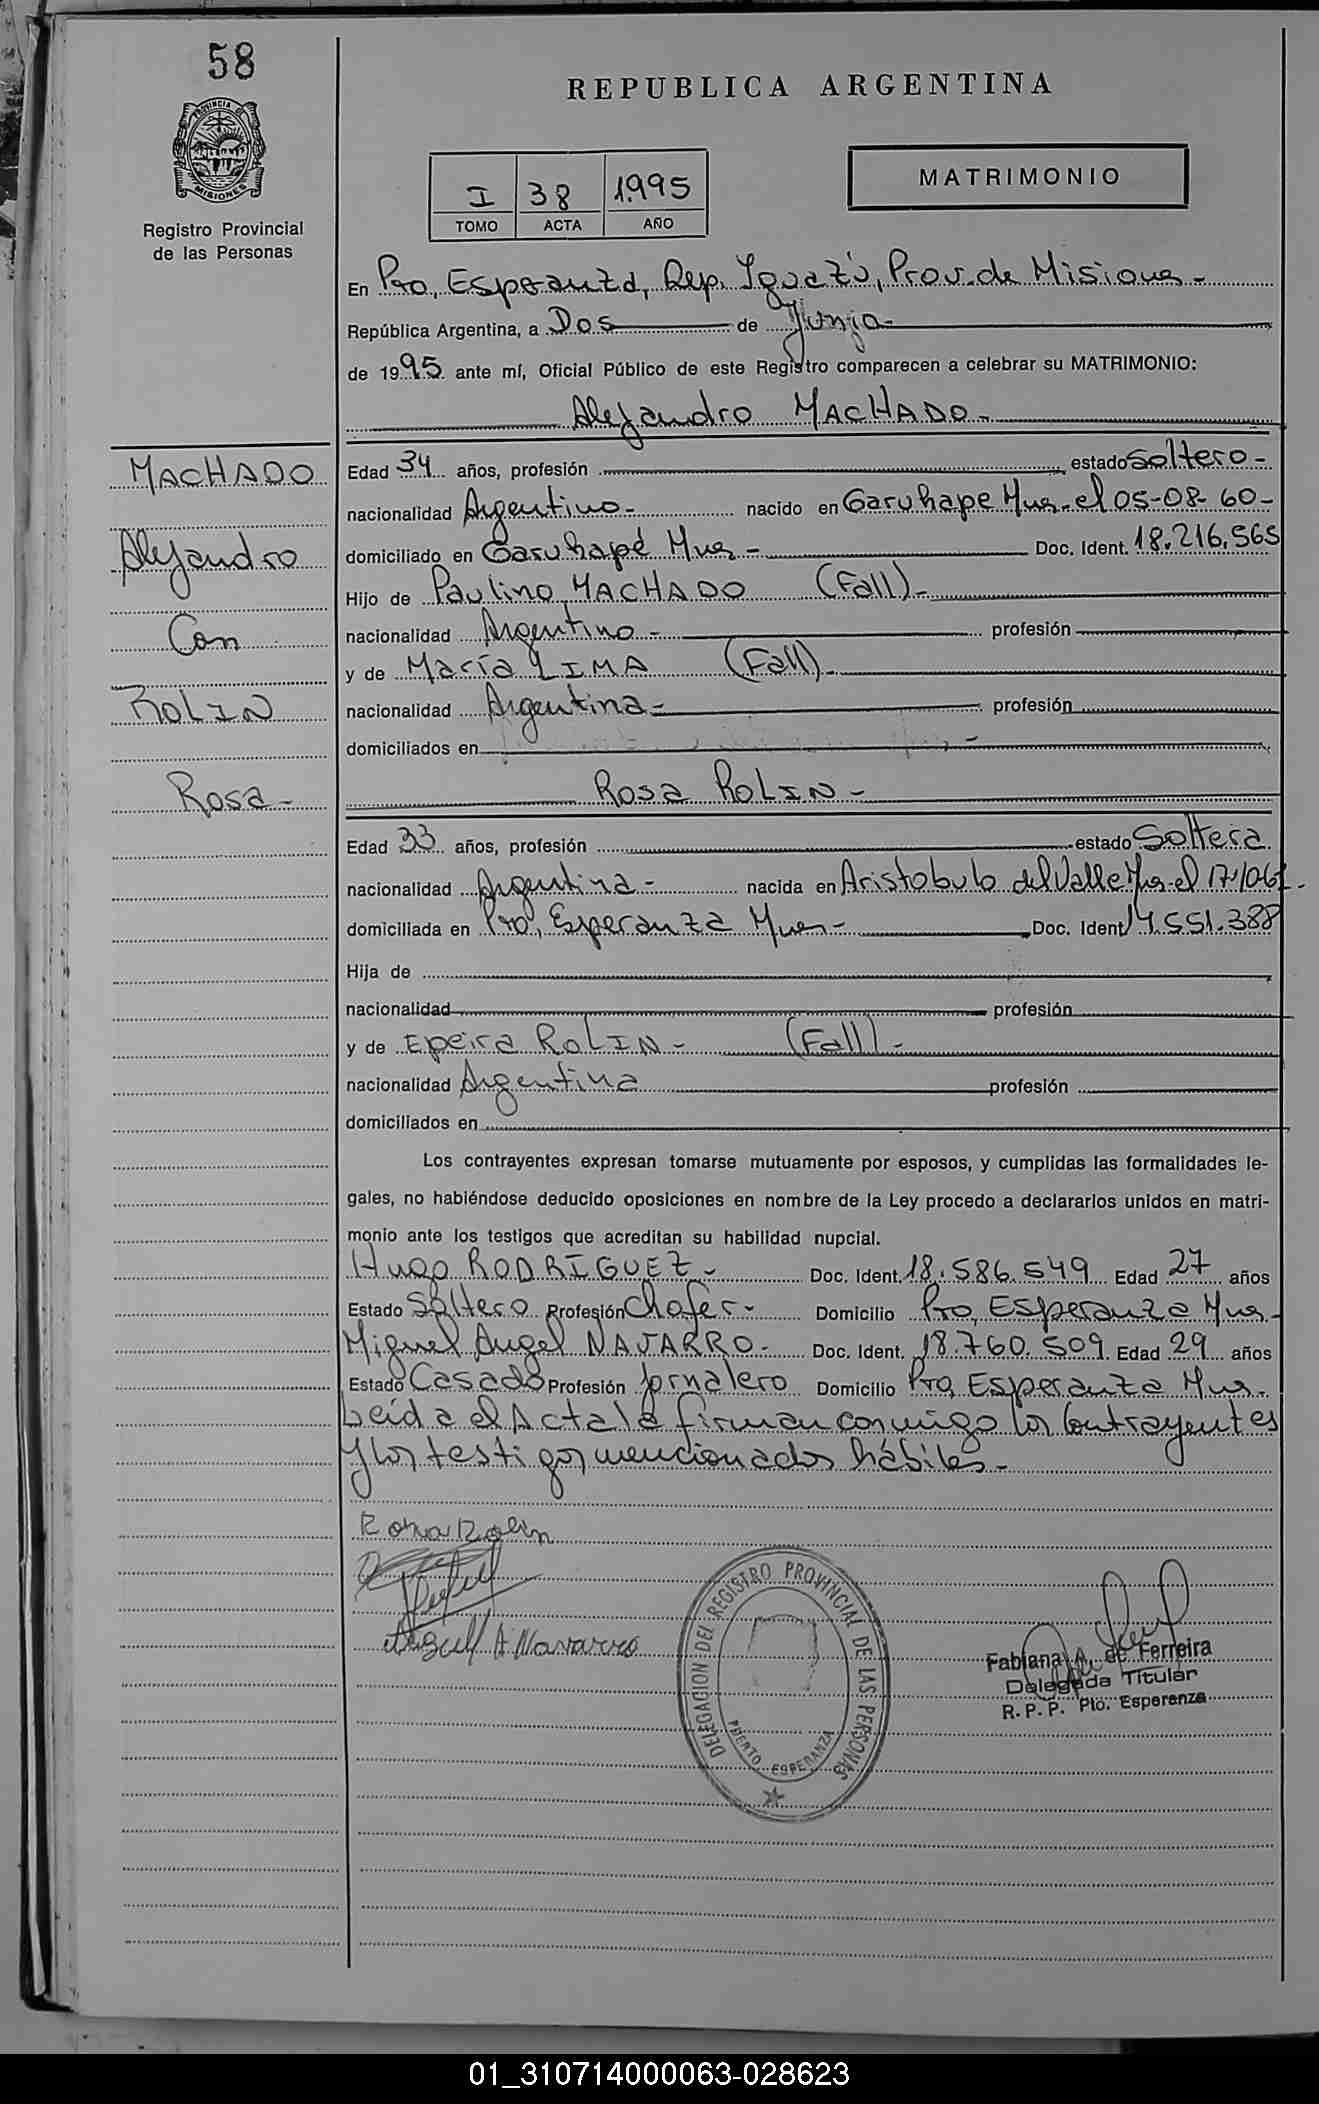 58
REPUBLICA ARGENTINA
PROVINCIA DE
MISIONES
Registro Provincial
de las Personas
I 38 1.995
TOMO ACTA AÑO
MATRIMONIO
En Pto, Esperanza, Dep. Iguazú, Prov. de Misiones-
República Argentina, a Dos de Junio-
de 1995 ante mí, Oficial Público de este Registro comparecen a celebrar su MATRIMONIO:
Alejandro MACHADO-
MACHADO
Alejandro
Con
ROLIN
Rosa-
Edad 34 años, profesión estado Soltero-
nacionalidad Argentino- nacido en Garuhape Mnes- el 05-08-60-
domiciliado en Garuhapé Mnes- Doc. Ident. 18.216.565
Hijo de Paulino MACHADO (Fall)-
nacionalidad Argentino- profesión
y de María LIMA (Fall)-
nacionalidad Argentina- profesión
domiciliados en
Rosa ROLIN-
Edad 33 años, profesión estado Soltera
nacionalidad Argentina- nacida en Aristobulo del Valle Mns-el
domiciliada en Pto, Esperanza Mnes- Doc. Ident 14.551.388
Hija de
nacionalidad profesión
y de Epeira ROLIN- (Fall)-
nacionalidad Argentina profesión
domiciliados en
Los contrayentes expresan tomarse mutuamente por esposos, y cumplidas las formalidades le-
gales, no habiéndose deducido oposiciones en nombre de la Ley procedo a declararlos unidos en matri-
monio ante los testigos que acreditan su habilidad nupcial.
Hugo RODRIGUEZ- Doc. Ident. 18.586.549 Edad 27 años
Estado Soltero Profesión Chofer- Domicilio Pto, Esperanza Mns-
Miguel Angel NAVARRO- Doc. Ident. 18.760.509 Edad 29 años
Estado Casado Profesión Jornalero Domicilio Pto, Esperanza Mns-
Leida el Acta la firman conmigo los Contrayentes
y los testigos mencionados hábiles-
Rosa Rolin
A Navarro
DELEGACION DEL REGISTRO PROVINCIAL DE LAS PERSONAS
PUERTO ESPERANZA
Fabiana A. de Ferreira
Delegada Titular
R.P.P. Pto. Esperanza
01_310714000063-028623